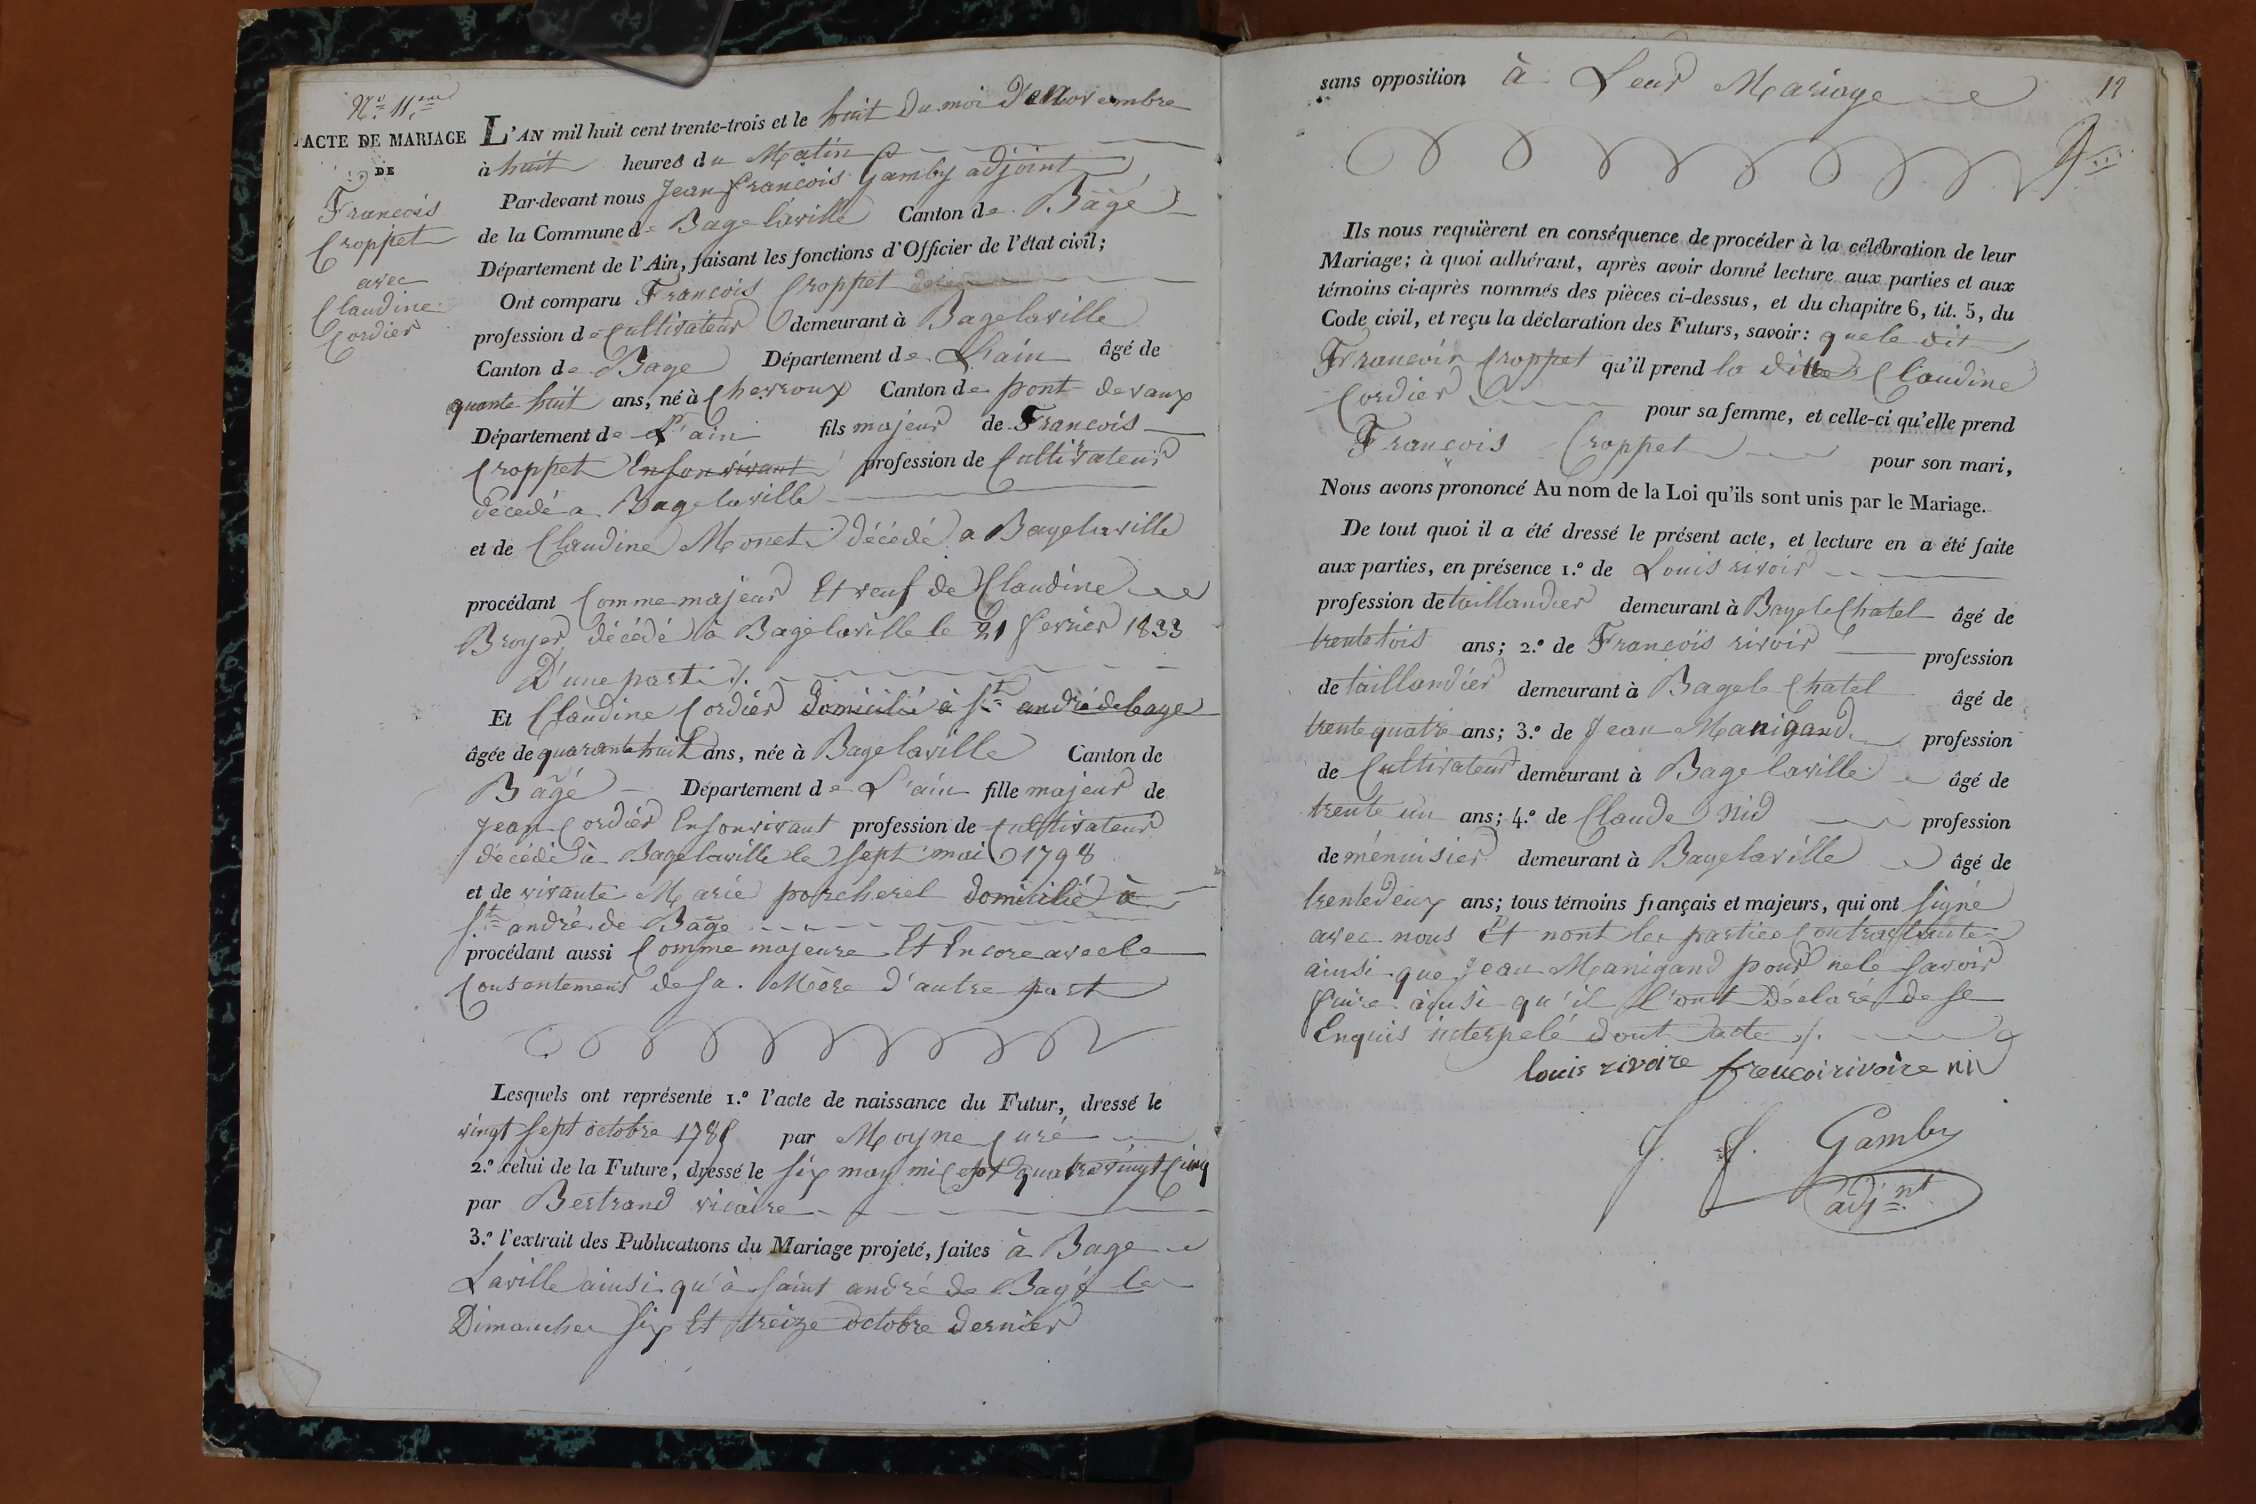 N.º 11.me
ACTE DE MARIAGE
DE
François
Croppet
avec
Claudine
Cordier
L'AN mil huit cent trente-trois et le huit du moi de Novembre
à huit heures du Matin
Par-devant nous Jean françois Gamby adjoint
de la Commune de Bage laville Canton de Bagé
Département de l'Ain, faisant les fonctions d'Officier de l'état civil;
Ont comparu François Croppet
profession de Cultivateur demeurant à Bagelaville
Canton de Bage Département de L'ain âgé de
quante huit ans, né à Chevroux Canton de pont devaux
Département de L'ain fils majeur de François
Croppet En son vivant profession de Cultivateur
décédé a Bagelaville
et de Claudine Monet décédé a Bagelaville
procédant Comme majeur Et veuf de Claudine
Broyer décédé à Bagelaville le 21 fevrier 1833
D'une part ./.
Et Claudine Cordier domicilié à St andré de bage
âgée de quarante huit ans, née à Bagelaville Canton de
Bagé Département de L'ain fille majeur de
Jean Cordier En son vivant profession de Cultivateur
décédé à Bagelaville le sept mai 1798
et de vivante Marie porcherel domicilié à
St andré de Bage
procédant aussi Comme majeure Et Encore avec le
Consentement de sa Mère d'autre part
Lesquels ont représenté 1.º l'acte de naissance du Futur, dressé le
vingt sept octobre 1785 par Moyne Curé
2.º celui de la Future, dressé le six may mil sept quatre vingt Cinq
par Bertrand vicaire
3.º l'extrait des Publications du Mariage projeté, faites à Bage
Laville ainsi qu'à saint andré de Bagé les
Dimanches six Et treize octobre dernier
12
sans opposition à Leur Mariage
Ils nous requièrent en conséquence de procéder à la célébration de leur
Mariage; à quoi adhérant, après avoir donné lecture aux parties et aux
témoins ci-après nommés des pièces ci-dessus, et du chapitre 6, tit. 5, du
Code civil, et reçu la déclaration des Futurs, savoir: que le dit
François Croppet qu'il prend la ditte Claudine
Cordier pour sa femme, et celle-ci qu'elle prend
François Croppet pour son mari,
Nous avons prononcé Au nom de la Loi qu'ils sont unis par le Mariage.
De tout quoi il a été dressé le présent acte, et lecture en a été faite
aux parties, en présence 1.º de Louis rivoir
profession de taillandier demeurant à Bagele Chatel âgé de
trente tois ans; 2.º de François rivoir profession
de taillandier demeurant à Bagele Chatel âgé de
trente quatre ans; 3.º de Jean Manigand profession
de Cultivateur demeurant à Bagelaville âgé de
trente un ans; 4.º de Claude Nid profession
de ménuisier demeurant à Bagelaville âgé de
trentedeux ans; tous témoins français et majeurs, qui ont signé
avec nous Et nont les parties Contractantes
ainsi que Jean Manigand pour ne le savoir
faire ainsi qu'il l'ont Déclaré de ce
Enquis interpelé dont acte ./.
louis rivoire francoi rivoire nid
J. f. Gamby
adjnt